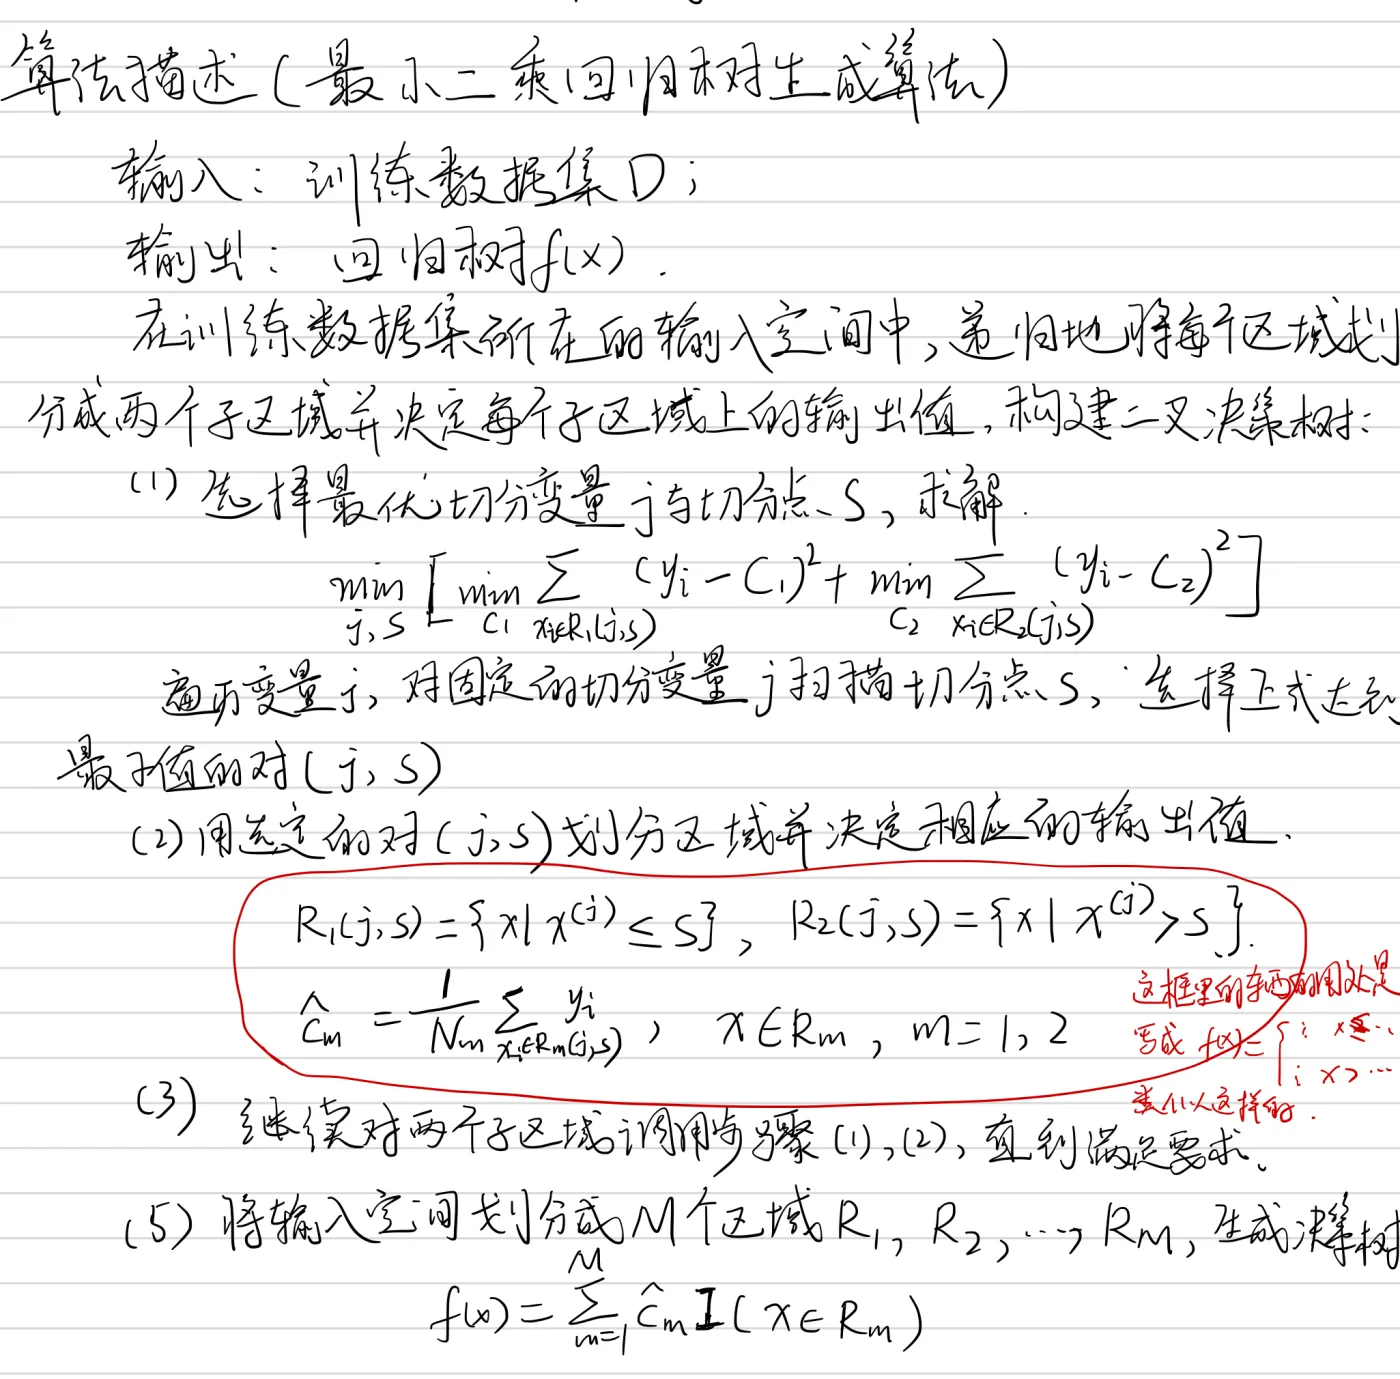 算法描述(最小二乘回归树生成算法)
输入: 训练数据集D;
输出: 回归树f(x).
在训练数据集所在的输入空间中,递归地将每个区域划
分成两个子区域并决定每个子区域上的输出值,构建二叉决策树:
(1) 选择最优切分变量j与切分点s,求解.
min_{j,s} [ min_{C_1} ∑_{x_i∈R_1(j,s)} (y_i-C_1)^2 + min_{C_2} ∑_{x_i∈R_2(j,s)} (y_i-C_2)^2 ]
遍历变量j,对固定的切分变量j扫描切分点s,选择上式达到
最小值的对(j,s)
(2)用选定的对(j,s)划分区域并决定相应的输出值.
R_1(j,s)={x|x^{(j)}≤s}, R_2(j,s)={x|x^{(j)}>s}.
ĉ_m = 1/N_m ∑_{x_i∈R_m(j,s)} y_i, x∈R_m, m=1,2
这框里的东西的用处是
写成 f(x)={ ; x≤...
; x>...
类似这样的.
(3) 继续对两个子区域调用步骤(1),(2),直到满足要求.
(5)将输入空间划分成M个区域R_1,R_2,...,R_M,生成决策树
f(x)=∑_{m=1}^{M} ĉ_m I(x∈R_m)